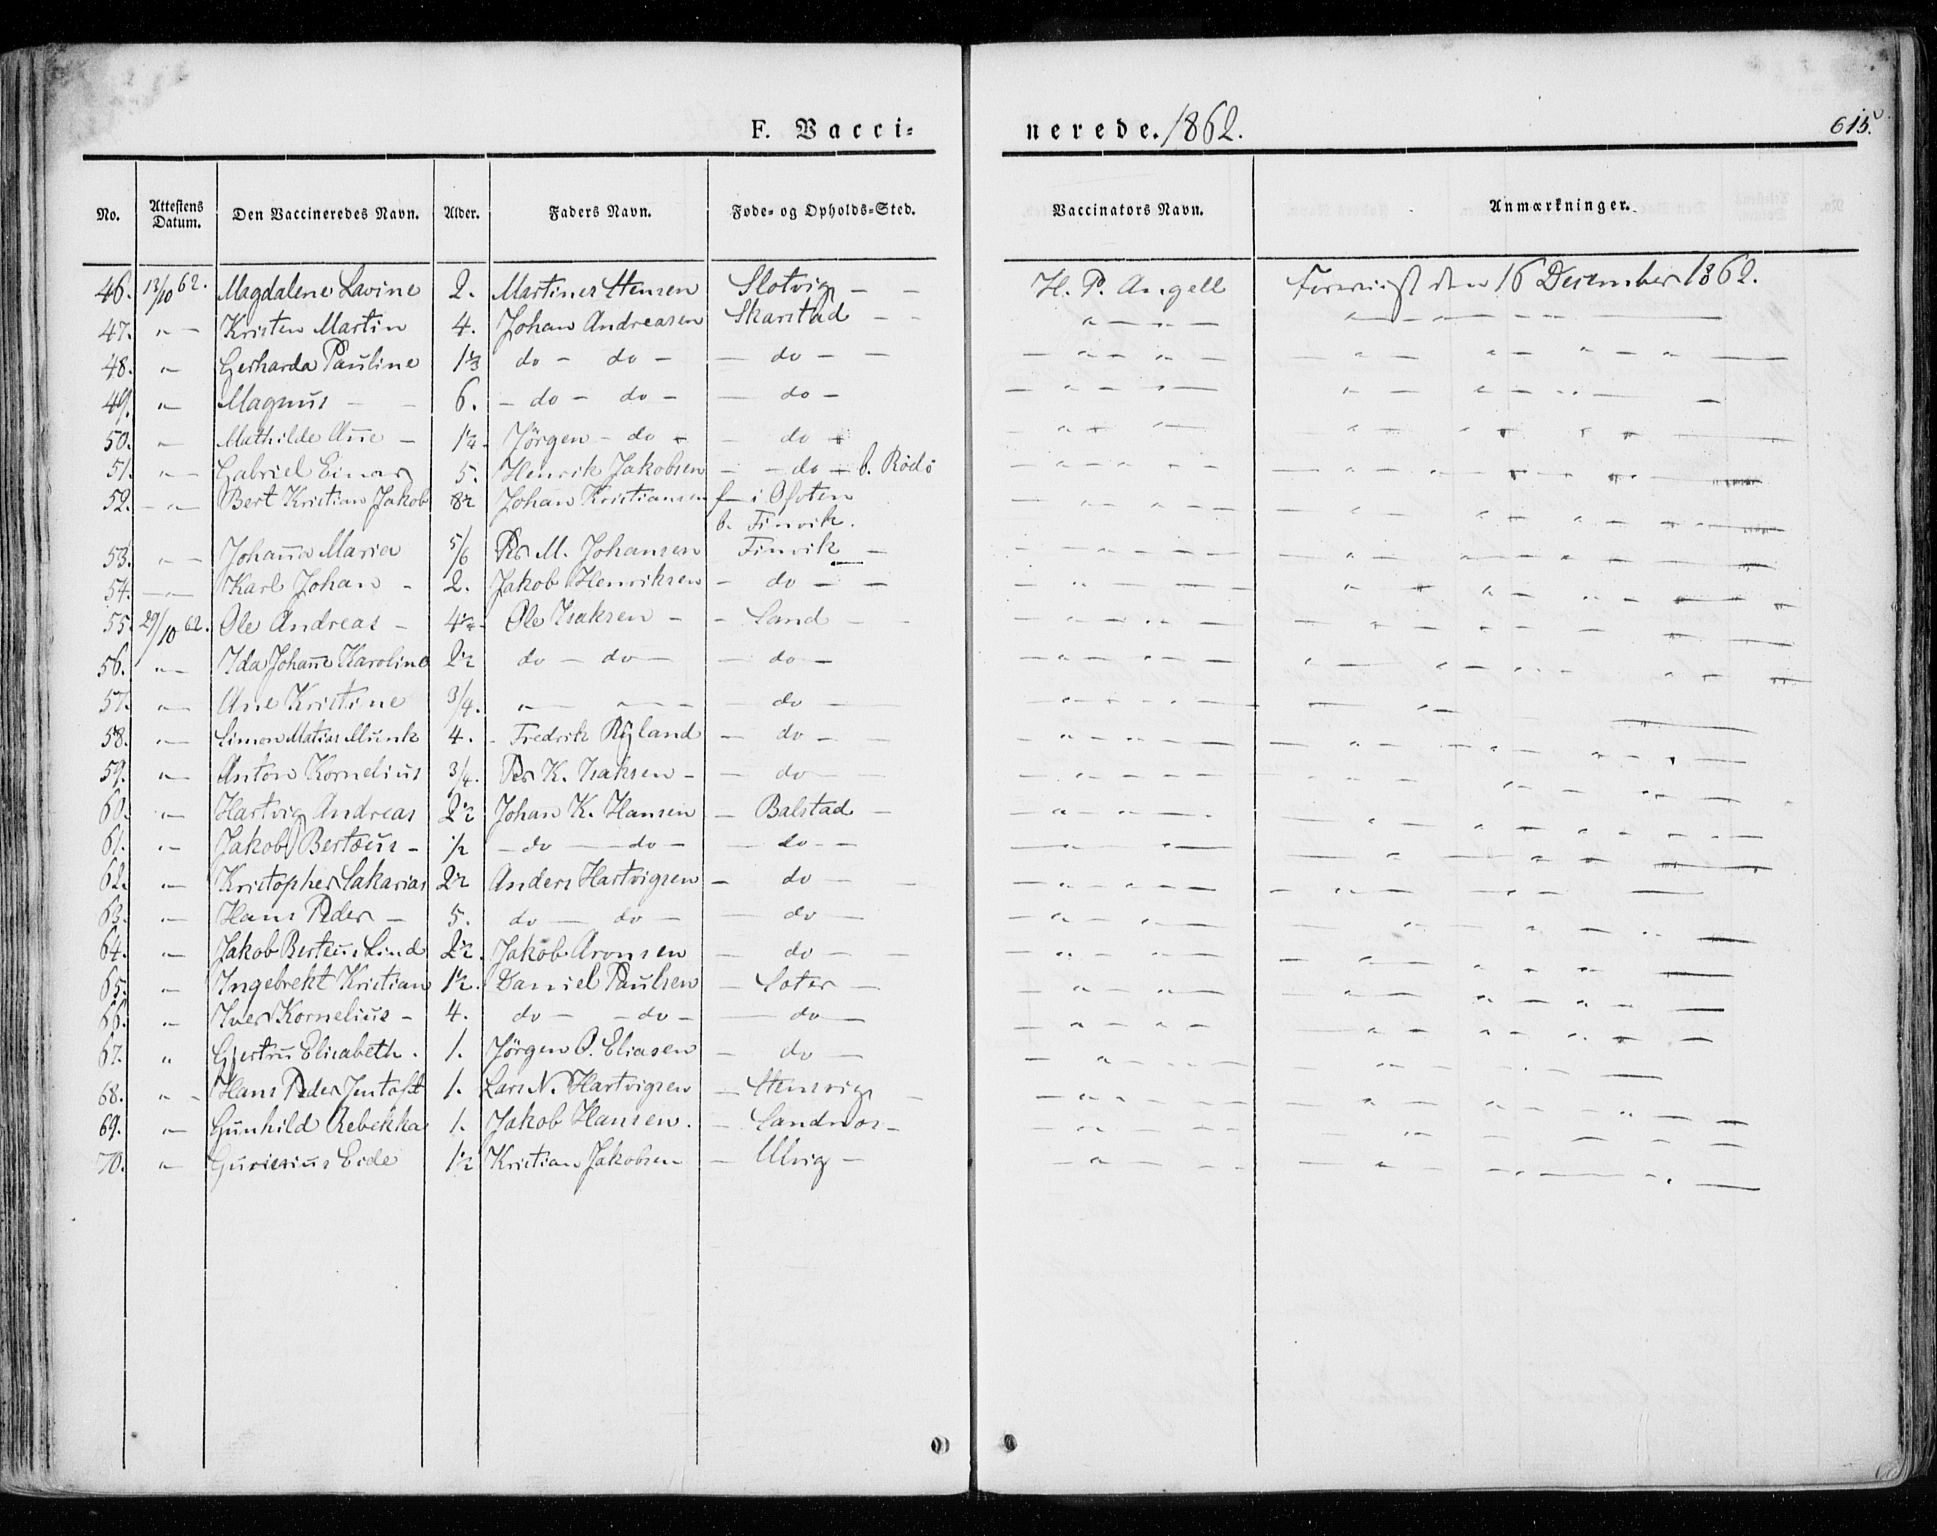 F. Vacci- nerede. 1862. 615.
No. | Attestens Datum. | Den Vaccineredes Navn. | Alder. | Faders Navn. | Føde- og Opholds-Sted. | Vaccinators Navn. | Anmærkninger.
46. 13/10 62. Magdalene Lavine 2. Martines Stensen Slotvig — — H. P. Angell Foreviist den 16 December 1862.
47. " — Kristen Martin 4. Johan Andreasen Skarstad — —
48. " Gerharda Pauline 1 1/3 do — do — — do — —
49. " — Magnus — — 6. — do — do — — do —
50. — Mathilde Ane — 1 1/4. Jörgen — do — — do —
51. " — Gabriel Einar 5. Henrik Jakobsen — — do — b. Rödö
52. — " — Bert Kristian Jakob 8 1/2 Johan Kristiansen f — i Ofoten
b. Finvik.
53. " — Johanna Maria 5/6 Per M. Johansen Finvik —
54. — " Karl Johan — 2. Jakob Henriksen — do — —
55. 29/10 62. Ole Andreas — 4 1/2 — Ole Isaksen — — Sand — —
56. " — Ida Johane Karoline 2 1/2 do — do — — do —
57. " — Ane Kristine 3/4. " — " — — do — —
58. " — Simon Matias Munk 4. — Fredrik Ryland — do — —
59. " — Anton Kornelius 3/4. Per K. Isaksen — — do — —
60. " — Hartvig Andreas 2 1/2 Johan K. Hansen — Balstad —
61. " — Jakob Bertæus — 1/2 — do — — do — — do — —
62. " — Kristopher Sakarias 2 1/2 Anders Hartvigsen — do — —
63. " — Hans Peder — 5. do — do — — do —
64. " — Jakob Berteus Lind 2 1/2. Jakob Aronsen — do — —
65. " — Ingebrekt Kristian 1 1/2. Daniel Paulsen — Soter —
66. " — Iver Kornelius — 4. do — — do — — do —
67. " Gjertru Elisabeth. 1. Jörgen P. Eliasen — do —
68. " — Hans Peder Jentoft 1. Lars N. Hartvigsen — Stensvig —
69. " — Gunhild Rebekka 1. Jakob Hansen. — Sandnos —
70. " — Eide 1 1/2 Kristian Jakobsen — Ulvig —